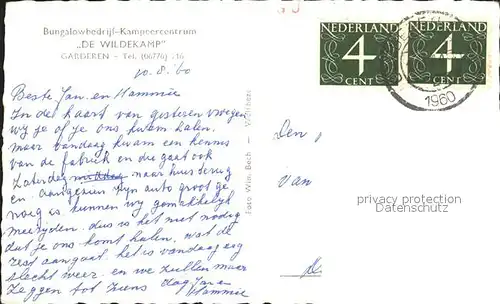 Bungalowbedrijf-Kampeercentrum
„DE WILDEKAMP"
GARDEREN - Tel. (06776) 216
10.8.'60
Beste Jan en Mammie
In de kaart van gisteren vroegen
wij je of je ons kwam halen.
maar vandaag kwam een kennis
van de fabriek en die gaat ook
Zaterdag middag naar huis terug
en aangezien zijn auto groot ge
noeg is kunnen wij gemakkelijk
meerijden. dus is het niet nodig
dat je ons komt halen. wat de
rest aangaat. het is vandaag erg
slecht weer. en we zullen maar
zeggen tot ziens dag Jan en
Mammie
Foto Wim. Bech -
NEDERLAND
4
CENT
NEDERLAND
4
CENT
1960
Den
van
privacy protection
Datenschutz